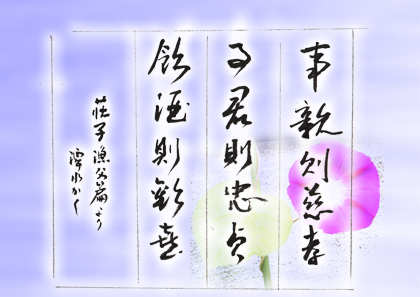 事親則慈孝
事君則忠貞
飲酒則歡喜
荘子漁父篇より
水かく